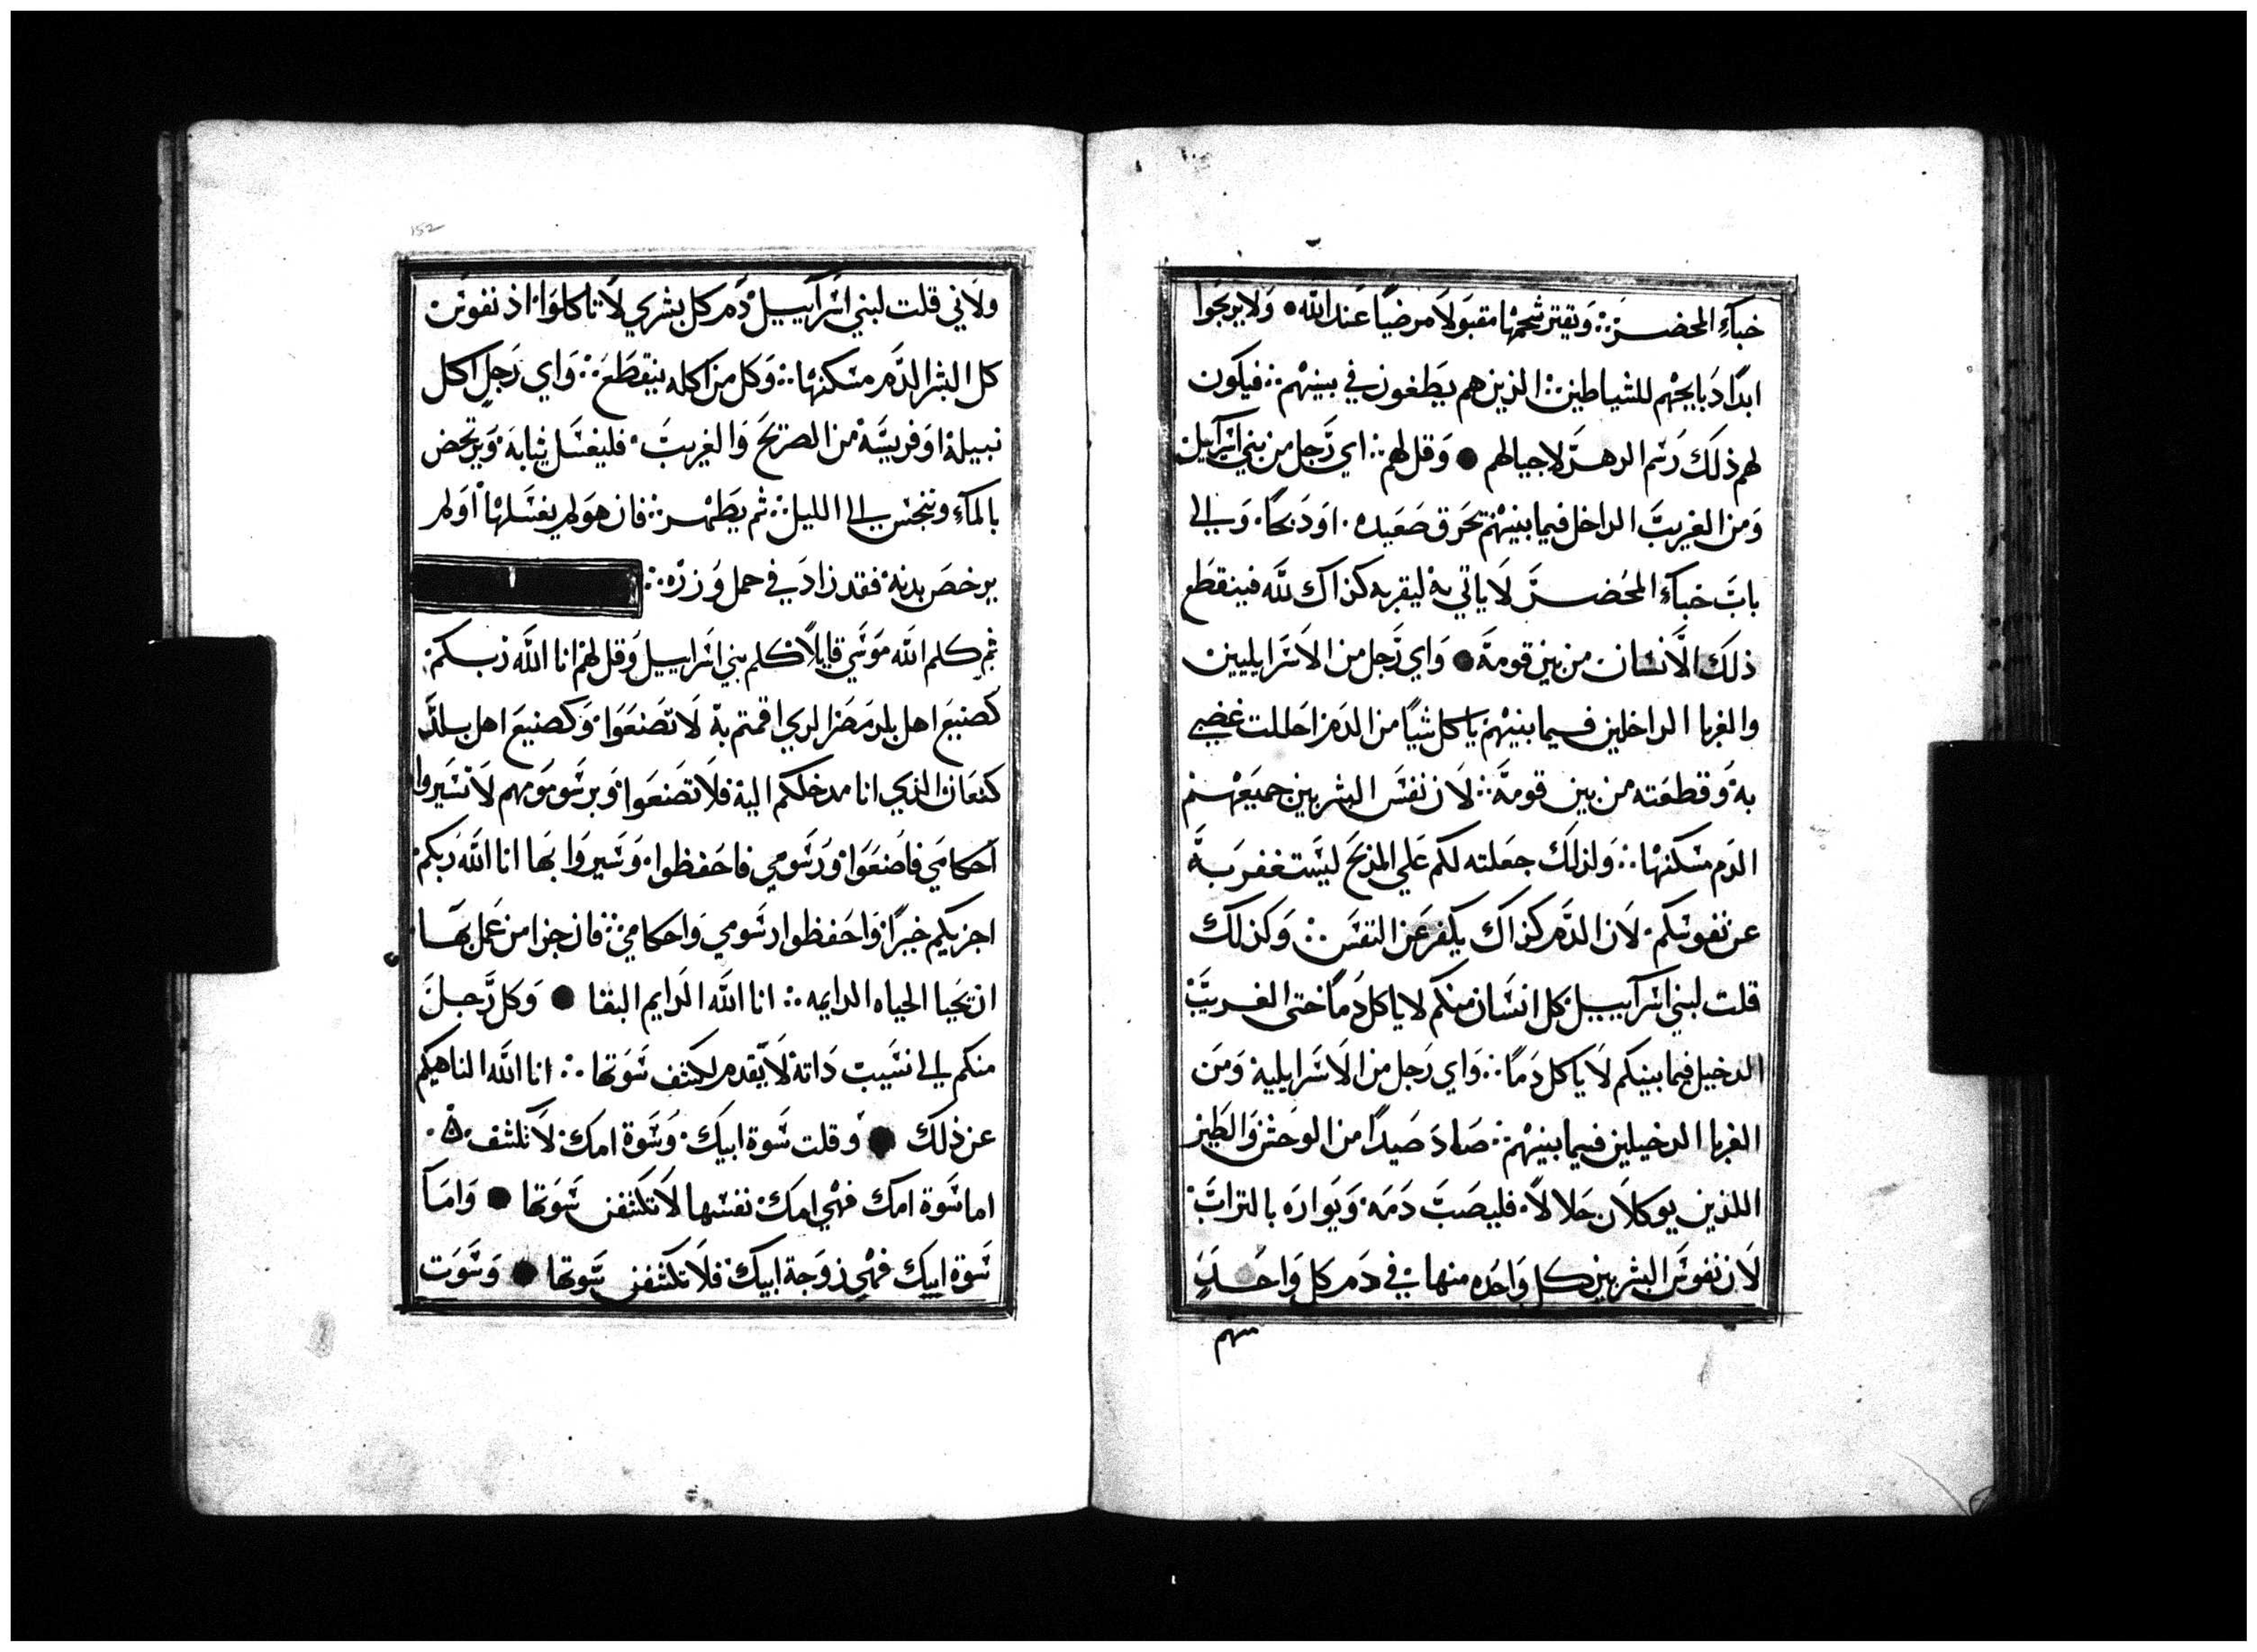 خبآءِ المحضر ∴ وَيقتر شحمها مقبَولاً مرضيًا عَند الله • وَلا يربَحوا
ابدًا دَبايحهم للشياطين ∴ الذين هم يطغون في بينهم ∴ فيكون
لهم ذلكَ رَسم الدهر لاجيالهم ● وَقل لهم ∴ اي رَجل من بني اسرآييل
وَمن الغريبَ الداخل فيما بينهم تحرق صَعيده . اوَ دَبحًا . وَالي
بابَ خبآءِ المُحضر لا ياتي به ليقربه كذاك لله فينقطع
ذلكَ الانسان من بين قومهَ ● وَاي رَجل من الاسَرايليين
والغربا الداخلين فيما بينهم ياكل شيًا من الدَم احللت غضبي
به وَقطعته من بين قومهَ ∴ لان نفسَ البشريين جميَعهم
الدَم مسكنها ∴ وَلذلكَ جعَلته لكم عَلي المذبحَ ليسَتغفر بهَ
عن نفوسكم . لان الدَم كذاك يكفر عَن النفسَ ∴ وَكذلك
قلت لبني اسرآييل كل انسَان منكم لا ياكل دُمًا حتى الغريبَ
الدخيل فيما بينكم لا ياكل دَمًا ∴ وَاي رَجل من الاسَرايلية وَمَن
الغربا الدخيلين فيما بينهم ∴ صَادَ صَيدًا من الوحَش وَالطير
اللذين يوكلان حَلالاً . فليصَبَ دَمَه . وَيَواره بالترابَ
لان نفوسَ البشريين كل وَاحَده منها في دَم كل وَاحَد
منهم
152
ولاني قلت لبني اسَرآييل دَم كل بشري لا تاكلوَا . اذ نفوس
كل البشر الدَم مسَكنها ∴ وَكل من اكله ينقطَع ∴ وَاي رَجل اكل
نبيلة اوَ فريسَة من الصَريحَ وَالغريبَ . فليغسَل ثيابهَ وَيرتحض
بالمآءِ وَينجسَ الي الليل ∴ ثم يَطهر ∴ فان هوَ لم يغسَلها اوَ لم
يرخصَ بدنه فقد زادَ في حمل وَزرَه ∴
ثم كلم الله مَوسَي قايلاً كلم بني اسَراييل وَقل لهم انا الله رَبكم
كصَنيعَ اهل بلد مَصَر الدي اقمتم بهَ لا تَصنعَوَا وَكصنيعَ اهل بلد
كنعَان الذي انا مدخلكم اليه فلا تصَنعَوا وَبرسَومهم لا تسَيروا
احكامَي فاصَنعَوَا وَرسَومي فاحَفظوا . وَسَيروَا بَها انا الله رَبكم
اجزيكم خيرًا وَاحَفظوا رسَومي وَاحكامي ∴ فان جزا من عَمل بهَا
ان يَحيا الحياه الدايمه ∴ انا الله الدَايم البقا ● وَكل رَجل
منكم الي نسَيب دَاته لا يَقدم لكشف سَوَتها ∴ انا الله الناهيكم
عن ذلك ● وَقلت سَوة ابيكَ . وَسَوة امك . لا تَكشف .
اما سَوة امك فهي امَك نفسَها لا تَكشفن سَوَتها ● وَامَا
سَوة ابيك فهي زوَجة ابيكَ فلا تكشفن سَوتها ● وَسَوَت